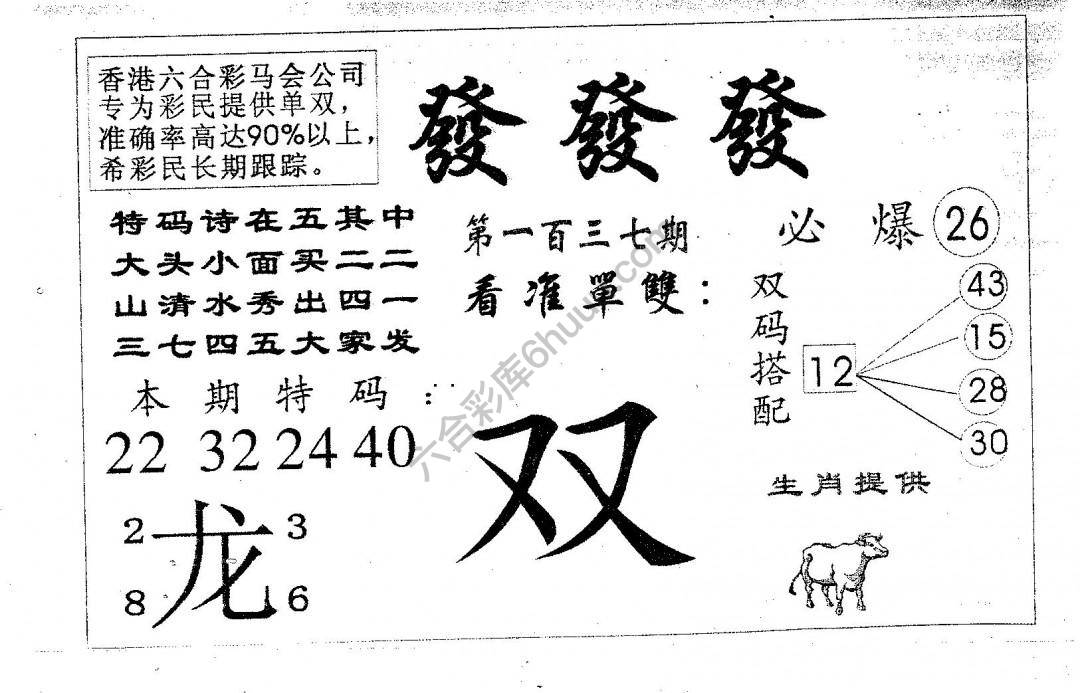 香港六合彩马会公司
专为彩民提供单双，
准确率高达90%以上，
希彩民长期跟踪。
發發發
特码诗在五其中
大头小面买二二
山清水秀出四一
三七四五大家发
第一百三七期
看准單雙：
必爆26
双码搭配
12
43
15
28
30
本期特码：
22 32 24 40
双
2 3
龙
8 6
生肖提供
六合彩库6huu.com